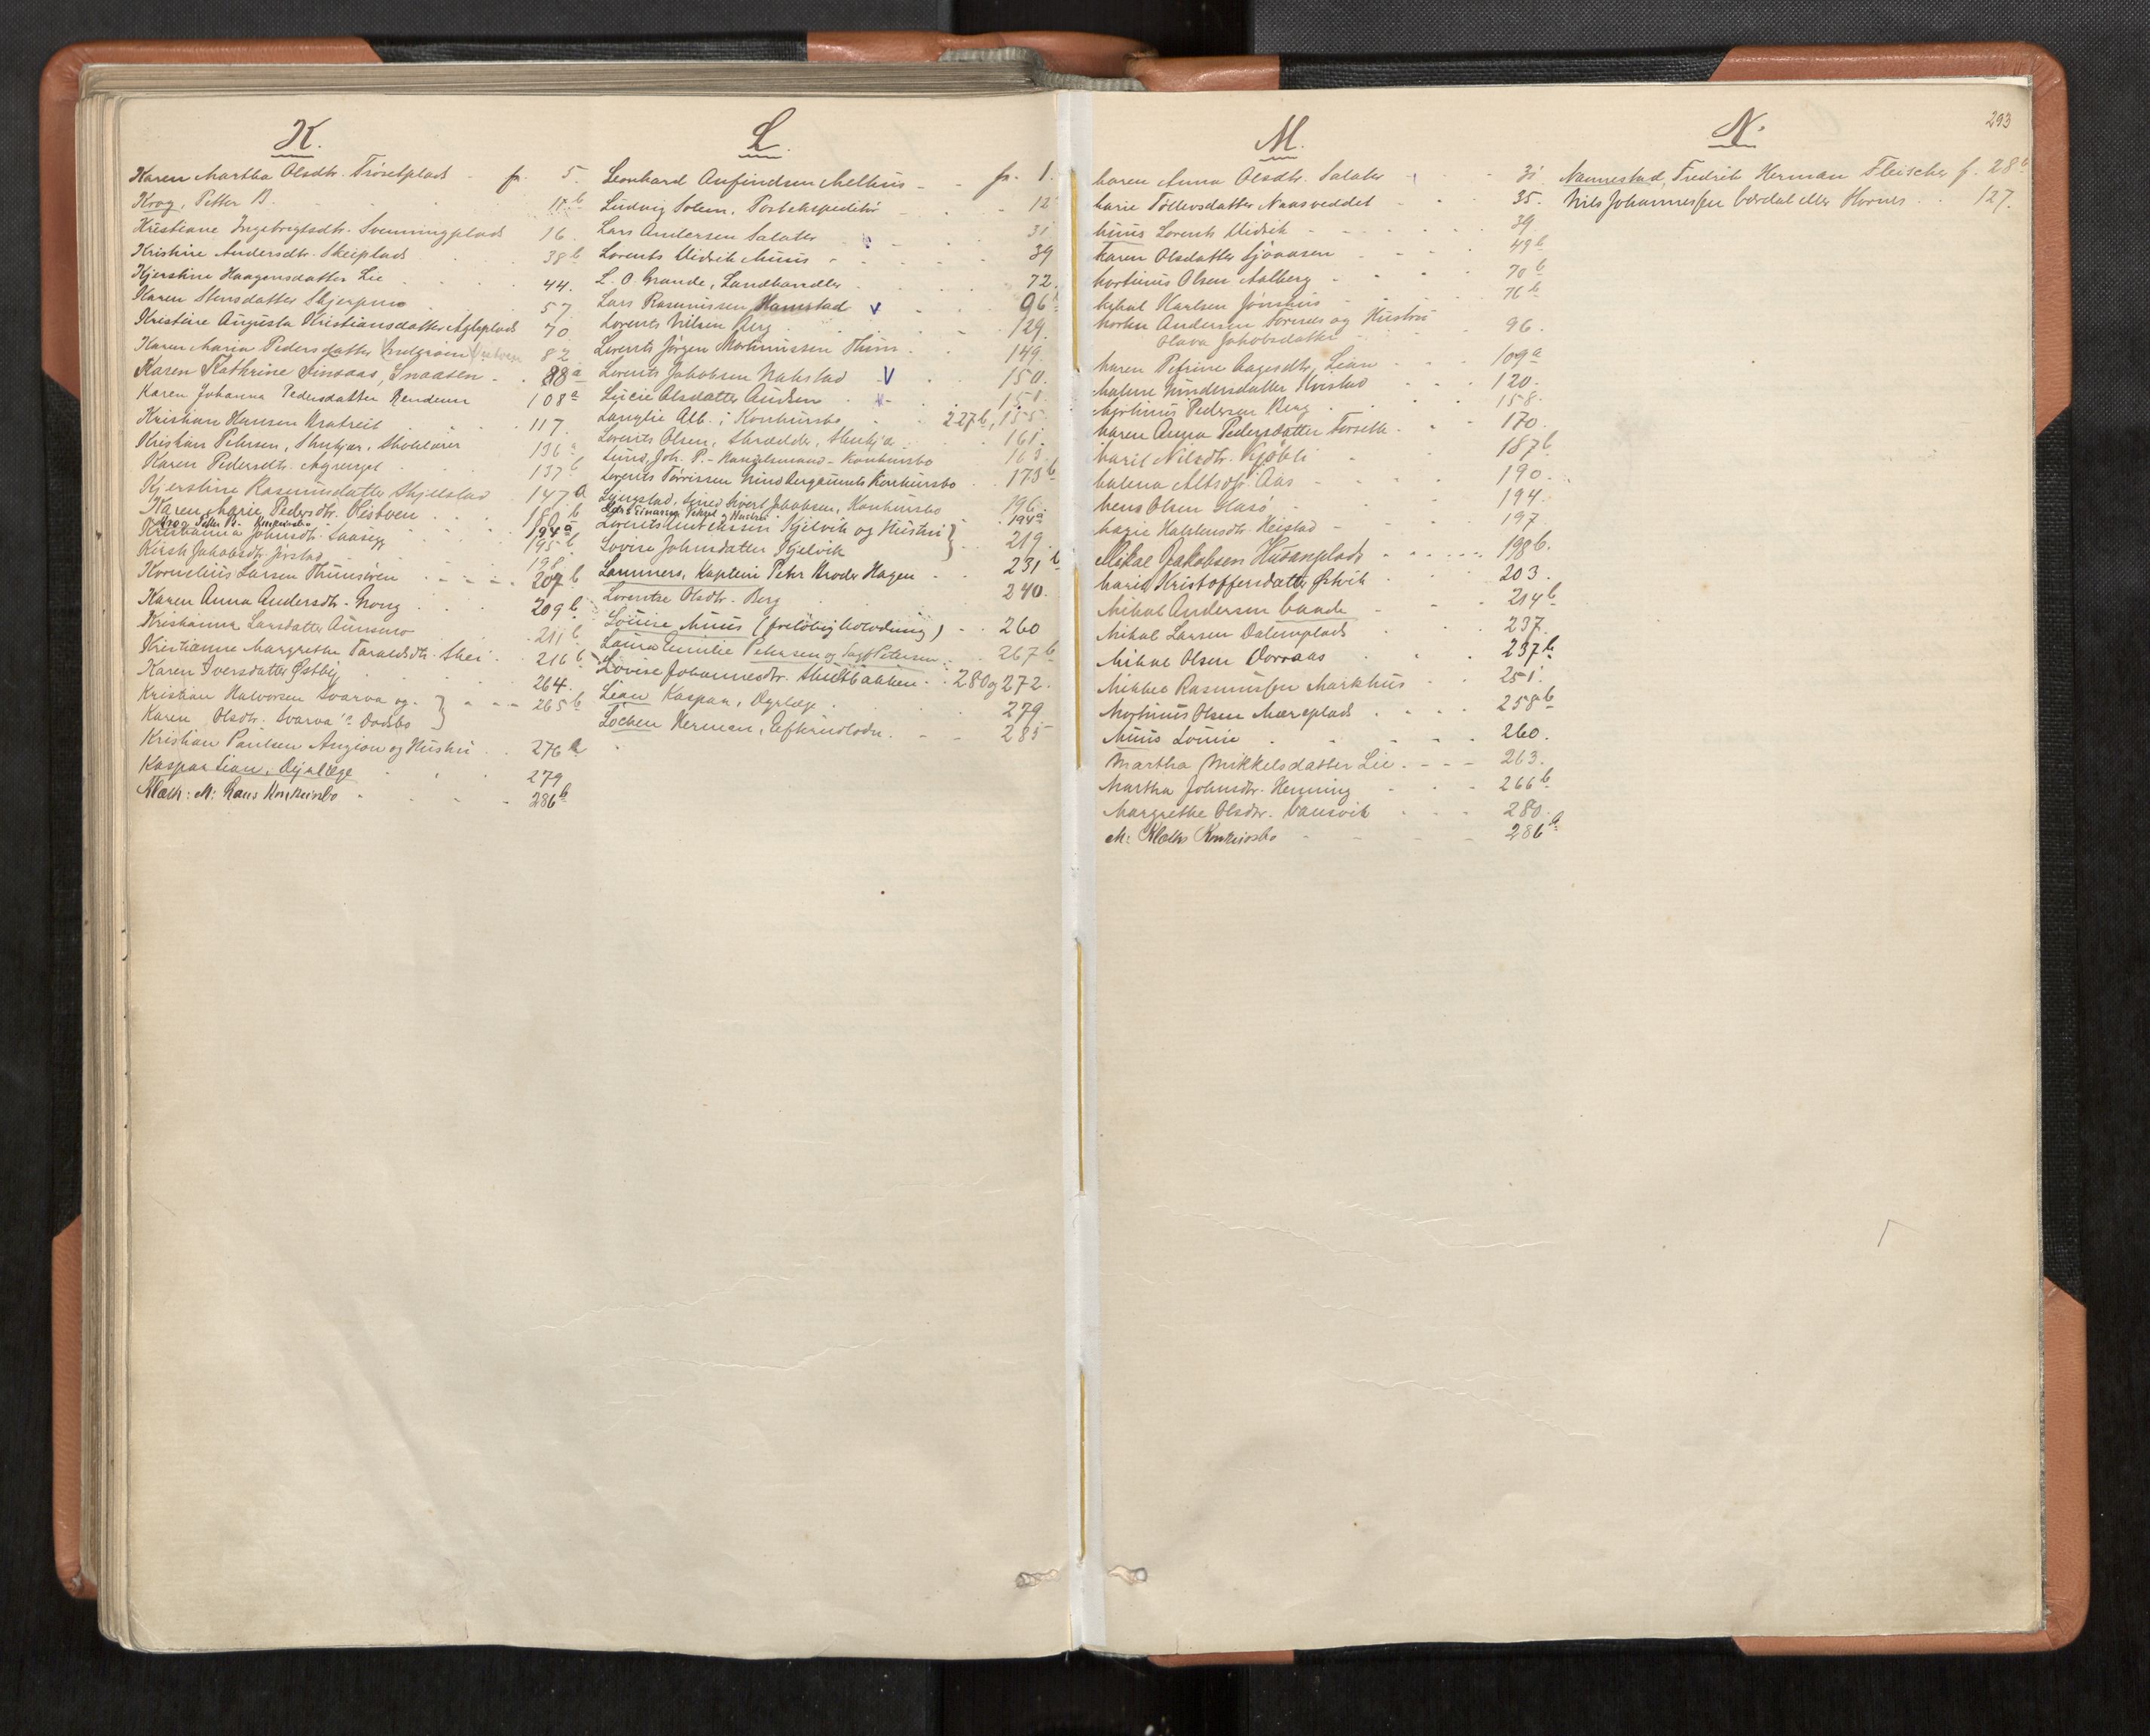 K.
Karen Martha Olsdtr. Trösetplads - fr. 5.
Krog, Petter B. 11b
Kristiane Ingebrigtsdtr. Svenningplads 16.
Kristine Andersdtr. Skeiplads 38b
Kjerstine Haagensdatter Lie 44.
Karen Stensdatter Skjerpmo 57
Kristine Augusta Kristiansdatter Agleplads 70
Karen Maria Pedersdatter 82
Karen Kathrine Finsaas, Snaasen - 88a
Karen Johanna Pedersdatter Rendum 108a
Kristian Hansen Kratreit 117.
Kristian Petersen, Stenkjær, Skolelærer 136a
Karen Pedersdtr. 137b
Kjerstine Rasmusdatter Skjelstad 147a
Karen Marie Pedersdtr. Kistven 180b
Krog Petter B. Konkursbo 194a
Kristianna Johnsdtr. 195b
Kirsti Jakobsdtr. Jörstad 198
Kornelius Larsen Thunesören 207b
Karen Anna Andersdtr. Grong 209b
Kristianna Larsdatter Aunsmo 211b
Kristianne Margrethe Taraldsdtr. Skei 216b
Karen Iversdatter Østby 264.
Kristian Halvorsen Svarva og } 265b
Karen Olsdtr. Svarva's Dødsbo
Kristian Paulsen Angion og Hustru 276a
Kaspar Lian, Dyrlæge 279
Klæth: M: Rans Konkursbo 286b
L.
Leonhard Anfindsen Melhus - - fr. 1.
Ludvig Solem, Postekspeditör 12
Lars Andersen Salater 31
Lorents Didrik Muus 39
L. O. Grande, Landhandler 72.
Lars Rasmussen Hamstad V 96b
Lorents Nilsen Berg 129.
Lorents Jörgen Martinussen Thun 149.
Lorents Jakobsen Nakstad V 150.
Lucie Olsdatter Audsen 151.
Langlie Alb. i Konkursbo 227b, 155
Lorents Olsen, Skrædder, Stenkjær 161.
Lund, Joh. P. - Handelsmand - Konkursbo 163.
Lorents Törrissen Konkursbo 173b
Sivert Jakobsen, Konkursbo 196.
og Hustru 194a
Lorents Andreassen Kjelvik og Hustru } 219
Lovise Johnsdatter Kjelvik
Lammers, Kaptein Peter Kroder Hagen 231b
Lorentse Olsdtr. Berg 240.
Louise Muus (foreløbig Udlodning) 260
Laura Emilie Petersen og Petersen 267b
Lovise Johannesdtr. Skulbakken 280 og 272.
Lian Kaspar, Dyrlæge 279
Löchen Herman, Eftermodn. 285
M.
Maren Anna Olsdtr. Salater 31.
Marie Töllevsdatter Naasveddet 35.
Muus Lorents Didrik 39
Maren Olsdatter Sjöaasen 49b
Martinus Olsen Aalberg 70b
Mikal Karlsen Jönshus 76b
Morten Andersen Forenes og Hustru 96.
Olava Jakobsdatter
Maren Petrine Aagesdtr. Lian 109a
Malene Gundersdatter Kvistad 120.
Martinus Pedersen Berg 158.
Maren Anna Pedersdatter Forseth 170.
Marit Nilsdtr. Kjöbli 187b
Malena Aas 190.
Mens Olsen Glasö 194.
Marie Haldensdtr. Heistad 197
Mikal Jakobsen Husanplads 198b.
Marie Kristoffersdatter Østvik 203.
Mikal Andersen Vaade 214b
Mikal Larsen Dalemplads 237.
Mikal Olsen Dorraas 237b
Mikkel Rasmussen Markhus 251.
Martinus Olsen Mæreplads 258b
Muus Louise 260.
Martha Mikkelsdatter Lie 263.
Martha Johnsdtr. Henning 266b
Margrethe Olsdtr. Vansvik 280.
M: Klæths Konkursbo 286b
N.
293
Nannestad, Fredrik Herman Fleischer f. 28b
Nils Johannessen Værdal eller Hovnes 127.